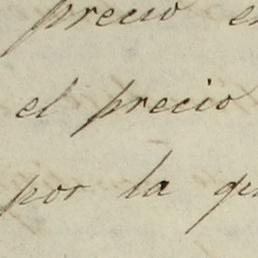 precio
el precio
por la